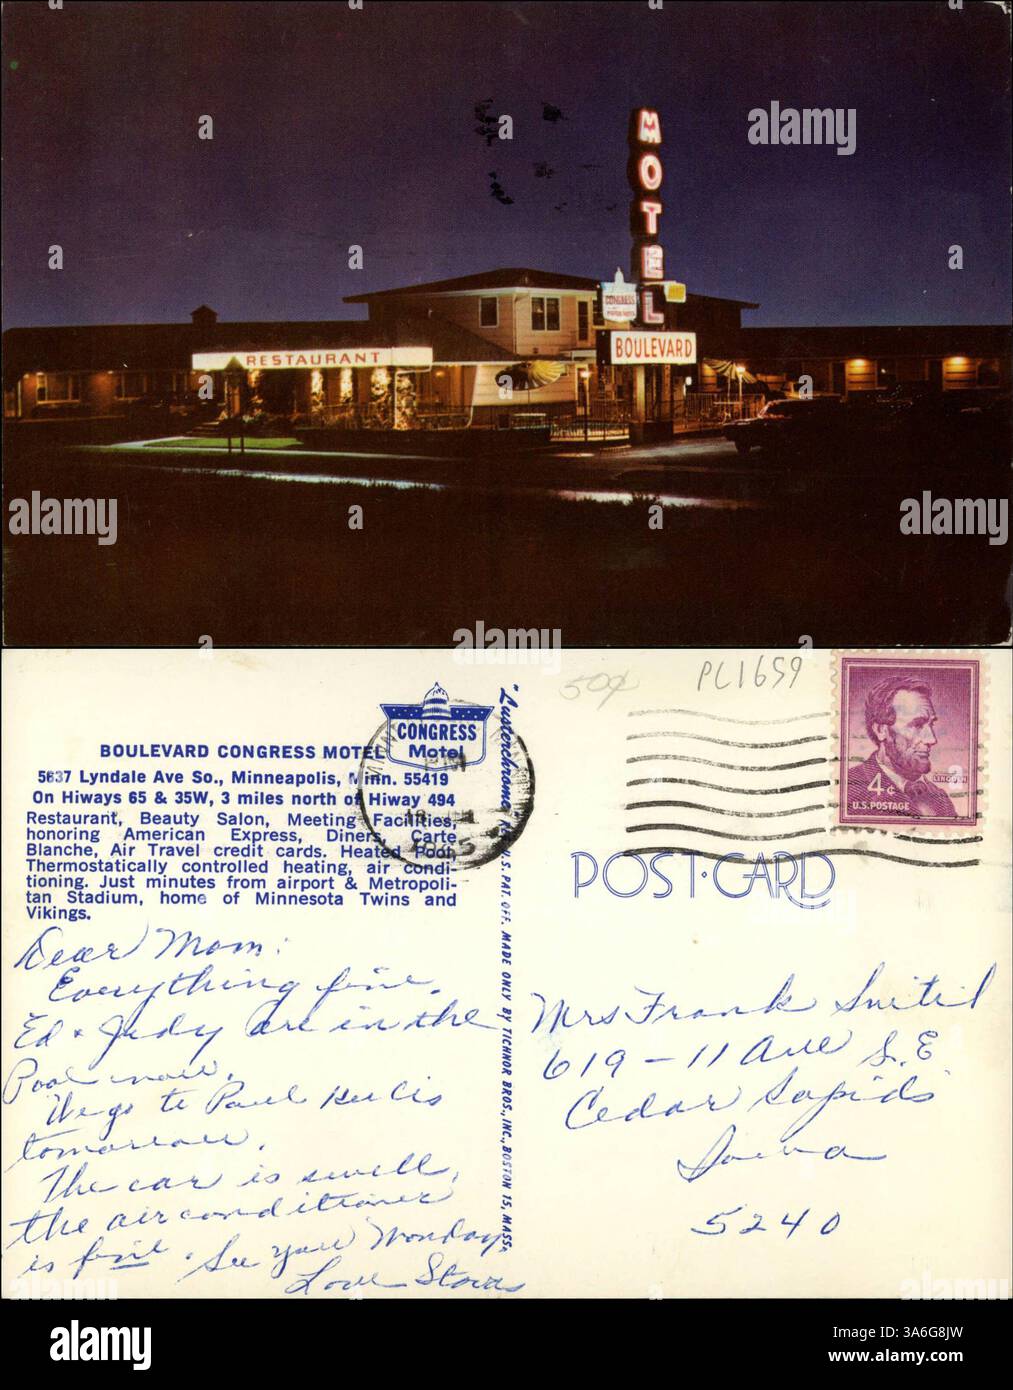 MOTEL
CONGRESS
BOULEVARD
RESTAURANT
PC1659
50¢
CONGRESS
Motel
BOULEVARD CONGRESS MOTEL
5637 Lyndale Ave So., Minneapolis, Minn. 55419
On Hiways 65 & 35W, 3 miles north of Hiway 494
Restaurant, Beauty Salon, Meeting Facilities,
honoring American Express, Diners, Carte
Blanche, Air Travel credit cards. Heated Pool,
Thermostatically controlled heating, air condi-
tioning. Just minutes from airport & Metropoli-
tan Stadium, home of Minnesota Twins and
Vikings.
Dear Mom:
Everything fine.
Ed & Judy are in the
Pool now.
We go to Paul
tomorrow.
The car is swell,
the air conditioner
is fine. See you Monday
Love
"Lusterchrome" REG. U.S. PAT. OFF. MADE ONLY BY TICHNOR BROS., INC., BOSTON 15, MASS.
LINCOLN
4¢
U.S. POSTAGE
POST·CARD
Mrs Frank
619-11 Ave S.E
Cedar Rapids
Iowa
5240
alamy
Image ID: 3A6G8JW
www.alamy.com